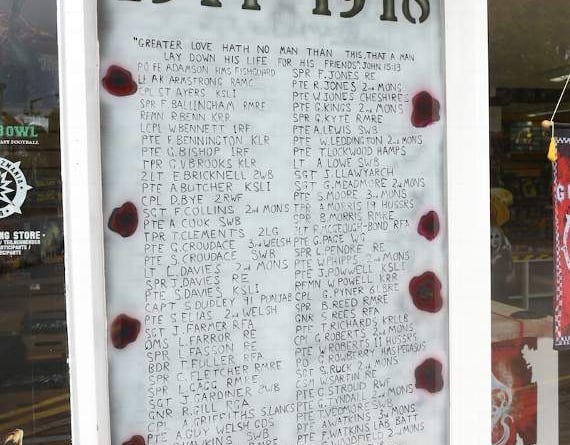 1914 - 1918
"GREATER LOVE HATH NO MAN THAN THIS, THAT A MAN
LAY DOWN HIS LIFE FOR HIS FRIENDS" JOHN 15:13
PO FE ADAMSON HMS FISHGUARD
AK ARMSTRONG RAMC
CPL C.T AYERS KSLI
SPR F. BALLINGHAM RMRE
RFMN R.BENN KRR
LCPL W.BENNETT 1RF
PTE F.BENNINGTON KLR
PTE G.BISHOP 1RF
TPR G.V BROOKS KLR
2LT E.BRICKNELL 2WB
PTE A BUTCHER KSLI
CPL D.BYE 2RWF
SGT F COLLINS 2ND MONS
PTE A COOK SWB
TPR T CLEMENTS 2LG
PTE G.CROUDACE 3RD WELSH
PTE S.CROUDACE SWB
LT L.DAVIES 2ND MONS
SPR J.DAVIES RE
PTE S.DAVIES KSLI
CAPT S DUDLEY 91 PUNJAB
PTE S ELIAS 2ND WELSH
SGT J.FARMER RFA
QMS L.FARROR RE
SPR L.FASSON RE
BDR T.FULLER RFA
SPR C.FLETCHER RMRE
SPR L GAGG RMRE
SGT J GARDNER 2WB
GNR R.GILL RFA
CPL A.GRIFFITHS S.LANCS
PTE A.GUY WELSH GDS
SWB
SPR F.JONES RE
PTE R.JONES 2ND MONS
PTE W JONES CHESHIRES
PTE G.KINGS 2ND MONS
SPR G.KYTE RMRE
PTE A.LEWIS SWB
PTE W.LEDDINGTON 2ND MONS
PTE T.LOCKWOOD HAMPS
LT A.LOWE SWB
SGT J.LLAWYARCH
SGT G.MEADMORE 2ND MONS
PTE S.MOORE 3RD MONS
A MORRIS 11 HUSSRS
B.MORRIS RMRE
BOND RFA
PTE G.PACE
SPR L.PENDRE RE
PTE W.PHIPPS 2ND MONS
PTE J.POWELL KSLI
RFMN W.POWELL IRR
CPL G.PYNER 6LBRE
SPR B.REED RMRE
GNR S REES RFA
PTE T RICHARDS KRLLB
CPL G.ROBERTS 2ND MONS
PTE W.ROBERTS 11 HUSSRS
PO G.ROWBERRY HMS PEGASUS
SGT G.RUCK 2ND MONS
CSM W.SARTIN RE
PTE G STROUD RWF
TYNDALL 2ND MONS
VEDMORE SWB
A WATKINS 3RD MONS
F.WATKINS LAB BATT
2ND MONS